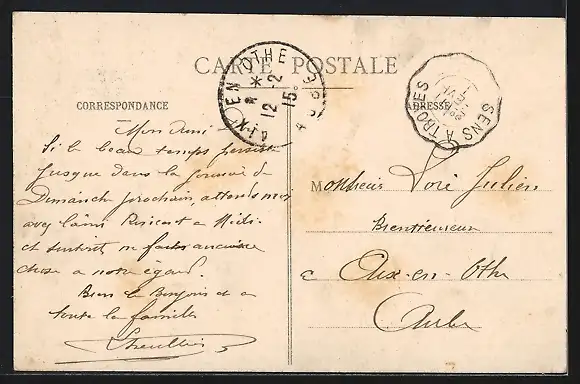 CARTE POSTALE
CORRESPONDANCE
ADRESSE
Mon Ami
Si le beau temps persiste
jusque dans la journée de
Dimanche prochain attends moi
avec l'ami à Midi
et surtout ne faites aucune
chose a notre égard.
Bien le Bonjour et a
toute la famille
Monsieur Loré Julien
à Aix-en-Othe
Aube
AIX EN OTHE
12 -2
15
SENS A TROYES